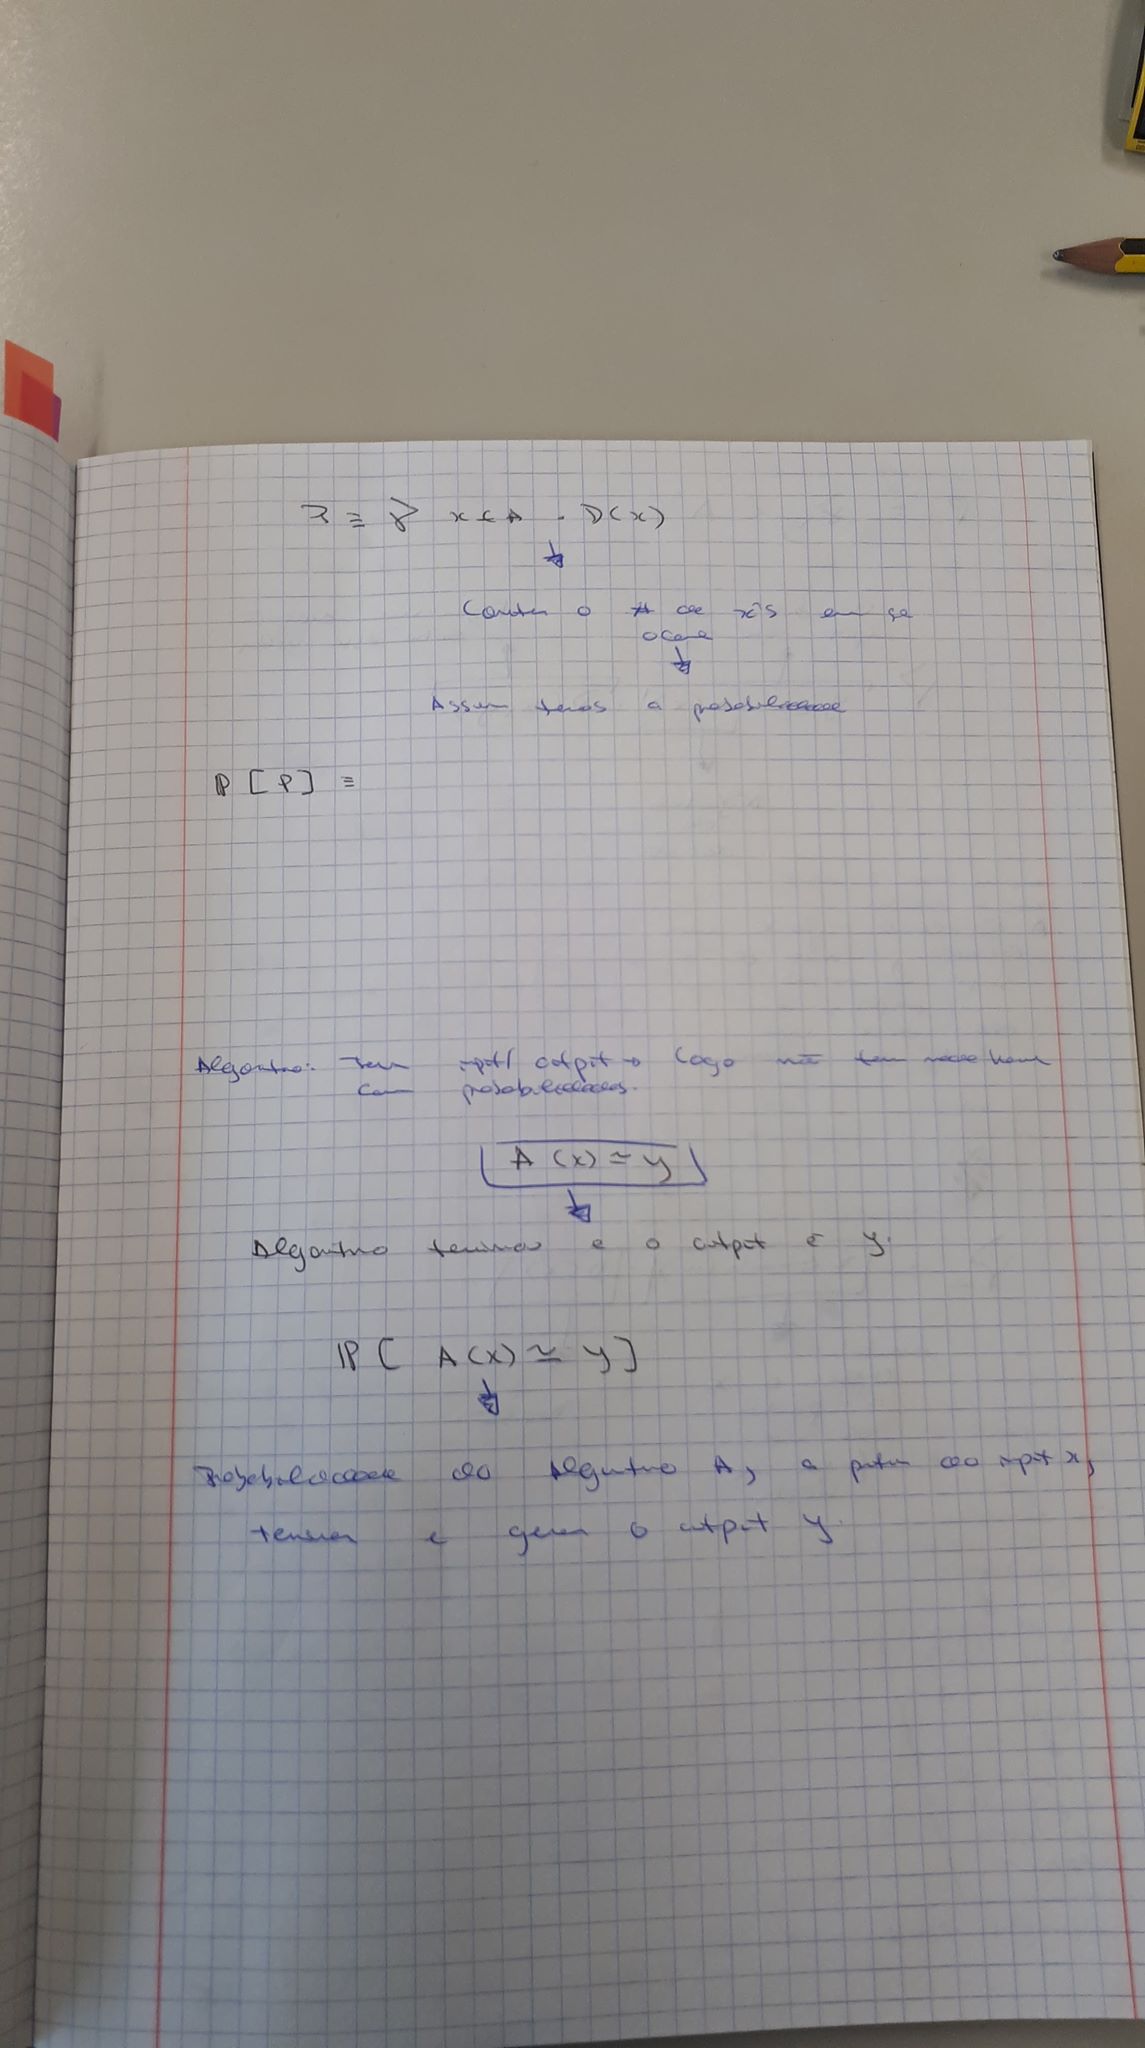 x ∈ A . D(x)
Contar o # de x's em que
ocorre
Assim temos a probabilidade
P [P] ≡
Algoritmo: Tem input/output → Logo não tem nada haver
com probabilidades.
A (x) ≃ y
Algoritmo terminou e o output é y.
P [ A(x) ≃ y ]
Probabilidade do Algoritmo A, a partir do input x,
terminar e gerar o output y.